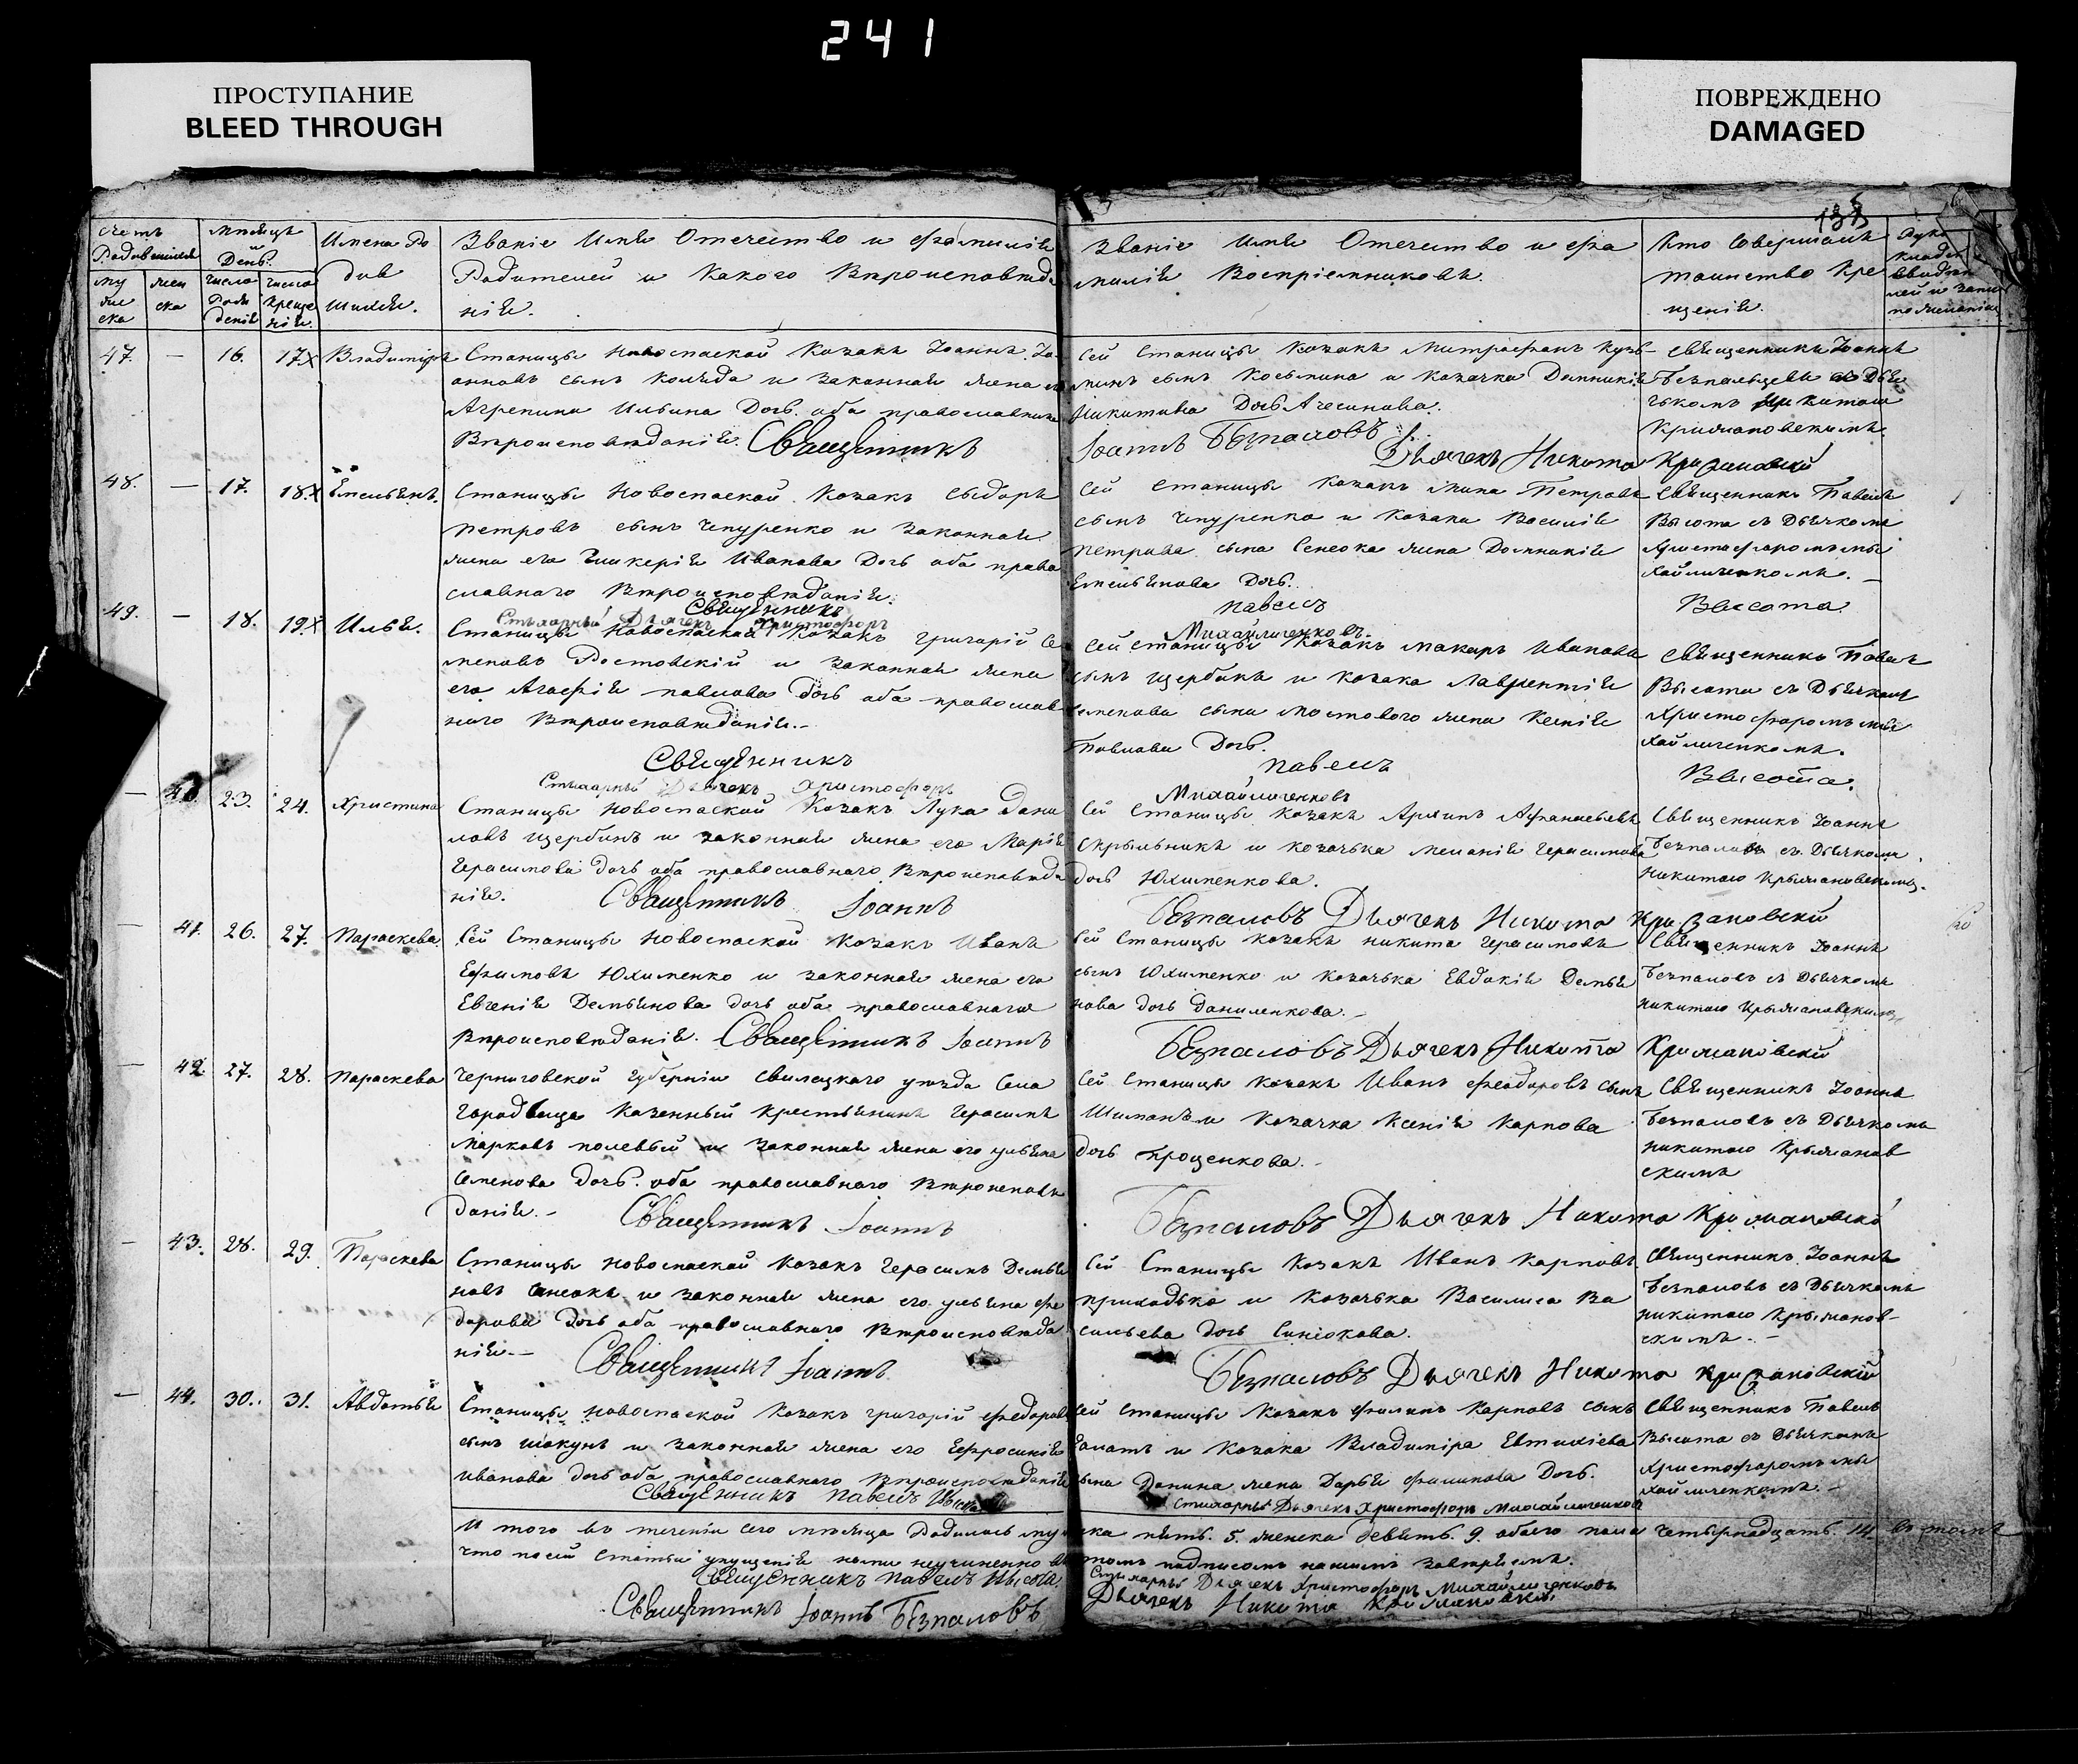 241
ПРОСТУПАНИЕ
BLEED THROUGH
ПОВРЕЖДЕНО
DAMAGED
Счетъ
Родившихся
му
жес
ска
жен
ска
Мѣсяцъ
и
День.
число
Рож
денія
число
Креще
нія.
Имена Ро
див
шихся.
Званіе Имя Отчество и фамилія
Родителей и Какого Вѣроисповѣда
нія.
Званіе Имя Отчество и фа
милія Воспріемниковъ.
Кто Совершалъ
таинство Кре
щенія.
47. — 16. 17 Владиміръ
Станицы Новоспаской Козакъ Іоаннъ Іо
анновъ сынъ Коляда и Законная жена его
Агрепина Ильина Дочь. оба православнаго
Вѣроисповѣданія. Священникъ
Сей Станицы Козакъ Митрофанъ Кузь
минъ сынъ Косьмина и Козачка Домникія
Никитина Дочь
Іоаннъ Безпаловъ
Дьячекъ Никита Крижановскій
Священникъ Іоаннъ
Дья
чкомъ Никитою
Крижановскимъ.
48. — 17. 18 Емельянъ.
Станицы Новоспаской Козакъ Сыдоръ
Петровъ сынъ Чепуренко и Законная
жена его Гликерія Иванова Дочь оба право
славнаго Вѣроисповѣданія.
Священникъ
Стихарный Дьячекъ Христофоръ
Сей Станицы Козакъ Мина Петровъ
сынъ Чепуренко и Козака Василія
Петрова сына Сенеока жена Домникія
Емельянова Дочь.
Павелъ
Михайличенковъ
Священникъ Павелъ
Высота съ Дьячкомъ
Христофоромъ Ми
хайличенкомъ. —
Высота
49. — 18. 19 Илья.
Станицы Новоспаской Козакъ Григорій Се
меновъ Ростовскій и законная жена
его Агафія Павлова Дочь оба православ
наго Вѣроисповѣданія.-
Священникъ
Стихарный Дьячекъ Христофоръ
Сей Станицы Козакъ Макаръ Ивановъ
сынъ Щербакъ и Козака Лаврентія
Семенова сына Мостового жена Ксенія
Павлова Дочь.
Павелъ
Михайличенковъ
Священникъ Павелъ
Высота съ Дьячкомъ
Христофоромъ Ми
хайличенкомъ.
Высота.
— 40. 23. 24. Христина
Станицы Новоспаской Козакъ Лука Дани
ловъ Щербинъ и законная жена его Марія
Герасимова дочь оба православнаго Вѣроисповѣда
нія. Священникъ Іоаннъ
Сей Станицы Козакъ Архипъ Афанасьевъ
Скрыльникъ и козачька Меланія Герасимова
дочь Юхименкова.
Безпаловъ Дьячекъ Никита Крижановскій
Священникъ Іоаннъ
Безпаловъ съ Дьячкомъ
Никитою Крыжановскимъ.
— 41. 26. 27. Параскева.
Сей Станицы Новоспаской козакъ Иванъ
Ефимовъ Юхименко и законная жена его
Евгенія Демьянова дочь оба православнаго
Вѣроисповѣданія. Священникъ Іоаннъ
Сей Станицы козакъ Никита Герасимовъ
сынъ Юхименко и козачька Евдокія Демья
нова дочь Даниленкова.-
Безпаловъ Дьячекъ Никита Крижановскій
Священникъ Іоаннъ
Безпаловъ съ Дьячкомъ
Никитою Крыжановскимъ
— 42. 27. 28. Параскева
Черниговской Губерніи уѣзда Села
Городища Казенный крестьянинъ Герасимъ
Марковъ Полевый и Законная жена его Ульяна
Семенова Дочь. оба православнаго Вѣроисповѣ
данія.- Священникъ Іоаннъ
Сей Станицы Козакъ Иванъ Феодоровъ сынъ
Шиманъ и Козачка Ксенія Карпова
дочь Проценкова.-
Безпаловъ Дьячекъ Никита Крижановскій
Священникъ Іоаннъ
Безпаловъ съ Дьячкомъ
Никитою Крыжанов
скимъ
— 43. 28. 29. Параскева
Станицы Новоспаской Козакъ Герасимъ Демья
новъ и законная жена его Ульяна Фе
дорова Дочь оба православнаго Вѣроисповѣда
нія.— Священникъ Іоаннъ
Сей Станицы Козакъ Иванъ Карповъ
Приходько и Козачька Василиса Ва
сильева дочь Синіокова.
Безпаловъ Дьячекъ Никита Крижановскій
Священникъ Іоаннъ
Безпаловъ съ Дьячкомъ
Никитою Крыжанов-
скимъ.-
— 44. 30. 31. Авдотья
Станицы Новоспаской Козакъ Григорій Федоровъ
сынъ Шокунъ и законная жена его Ефросинія
Иванова дочь оба православнаго Вѣроисповѣданія
Священникъ Павелъ Высота
Сей Станицы Козакъ Филипъ Карповъ сынъ
и Козака Владиміра Евтихіева
сына Данина жена Дарья Филипова Дочь.
Стихарный Дьячекъ Христофоръ Михайличенковъ
Священникъ Павелъ
Высота съ Дьячкомъ
Христофоромъ Ми
хайличенкомъ.-
И того въ теченіи сего мѣсяца Родилось мужеска пять. 5. женска девять. 9. обоего пола четырнадцать. 14. въ томъ
что посей статьи упущенія нами неучиненно въ томъ подписомъ нашимъ завѣряемъ.
Священникъ Павелъ Высота. Стихарный Дьячекъ Христофоръ Михайличенковъ
Священникъ Іоаннъ Безпаловъ Дьячекъ Никита Крижановскій.